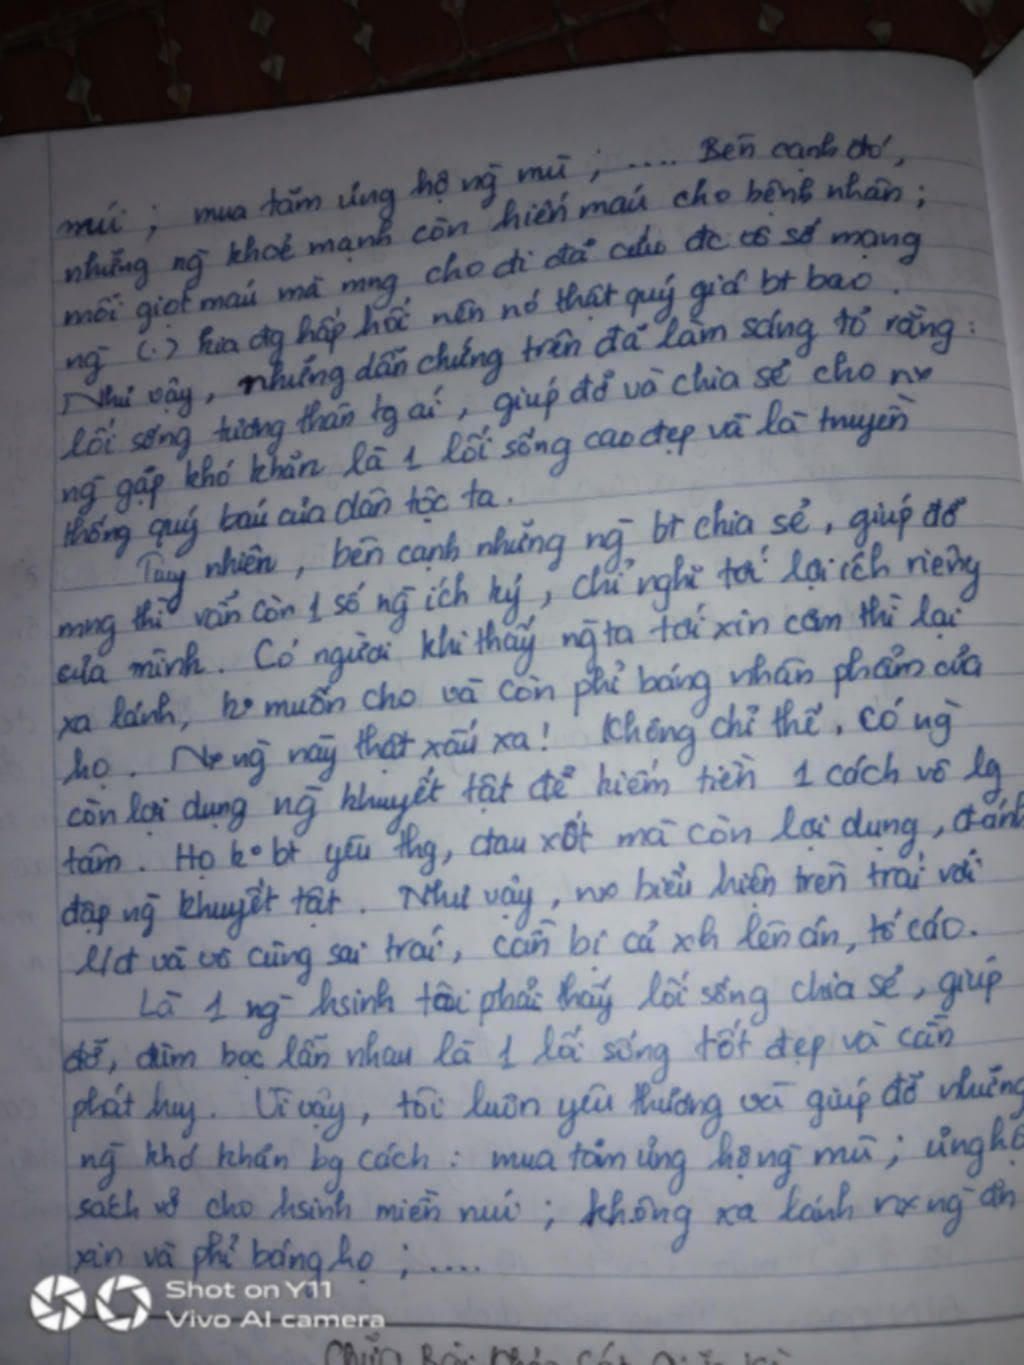 núi ; mua tăm ủng hộ ng mù ; .... Bên cạnh đó,
những ng khoẻ mạnh còn hiến máu cho bệnh nhân ;
mỗi giọt máu mà mng cho đi đã cứu đc vô số mạng
ng (.) hấp hối nên nó thật quý giá bt bao .
Như vậy, những dẫn chứng trên đã làm sáng tỏ rằng :
lối sống tương thân tg ái, giúp đỡ và chia sẻ cho
ng gặp khó khăn là 1 lối sống cao đẹp và là truyền
thống quý báu của dân tộc ta.
Tuy nhiên, bên cạnh những ng bt chia sẻ, giúp đỡ
mng thì vẫn còn 1 số ng ích kỷ, chỉ nghĩ tới lợi ích riêng
của mình. Có người khi thấy ng ta tới xin cơm thì lại
xa lánh, ko muốn cho và còn phỉ báng nhân phẩm của
họ. ng này thật xấu xa! Không chỉ thế, có ng
còn lợi dụng ng khuyết tật để kiếm tiền 1 cách vô lg
tâm. Họ ko bt yêu thg, đau xót mà còn lợi dụng, đánh
đập ng khuyết tật. Như vậy, biểu hiện trên trái với
l/đ và vô cùng sai trái, cần bị cả xh lên án, tố cáo.
Là 1 ng hsinh tôi phải thấy lối sống chia sẻ, giúp
đỡ, đùm bọc lẫn nhau là 1 lối sống tốt đẹp và cần
phát huy. Vì vậy, tôi luôn yêu thương và giúp đỡ những
ng khó khăn bg cách : mua tăm ủng hộ ng mù ; ủng hộ
sách vở cho hsinh miền núi ; không xa lánh ng ăn
xin và phỉ báng họ ; ....
Shot on Y11
Vivo AI camera